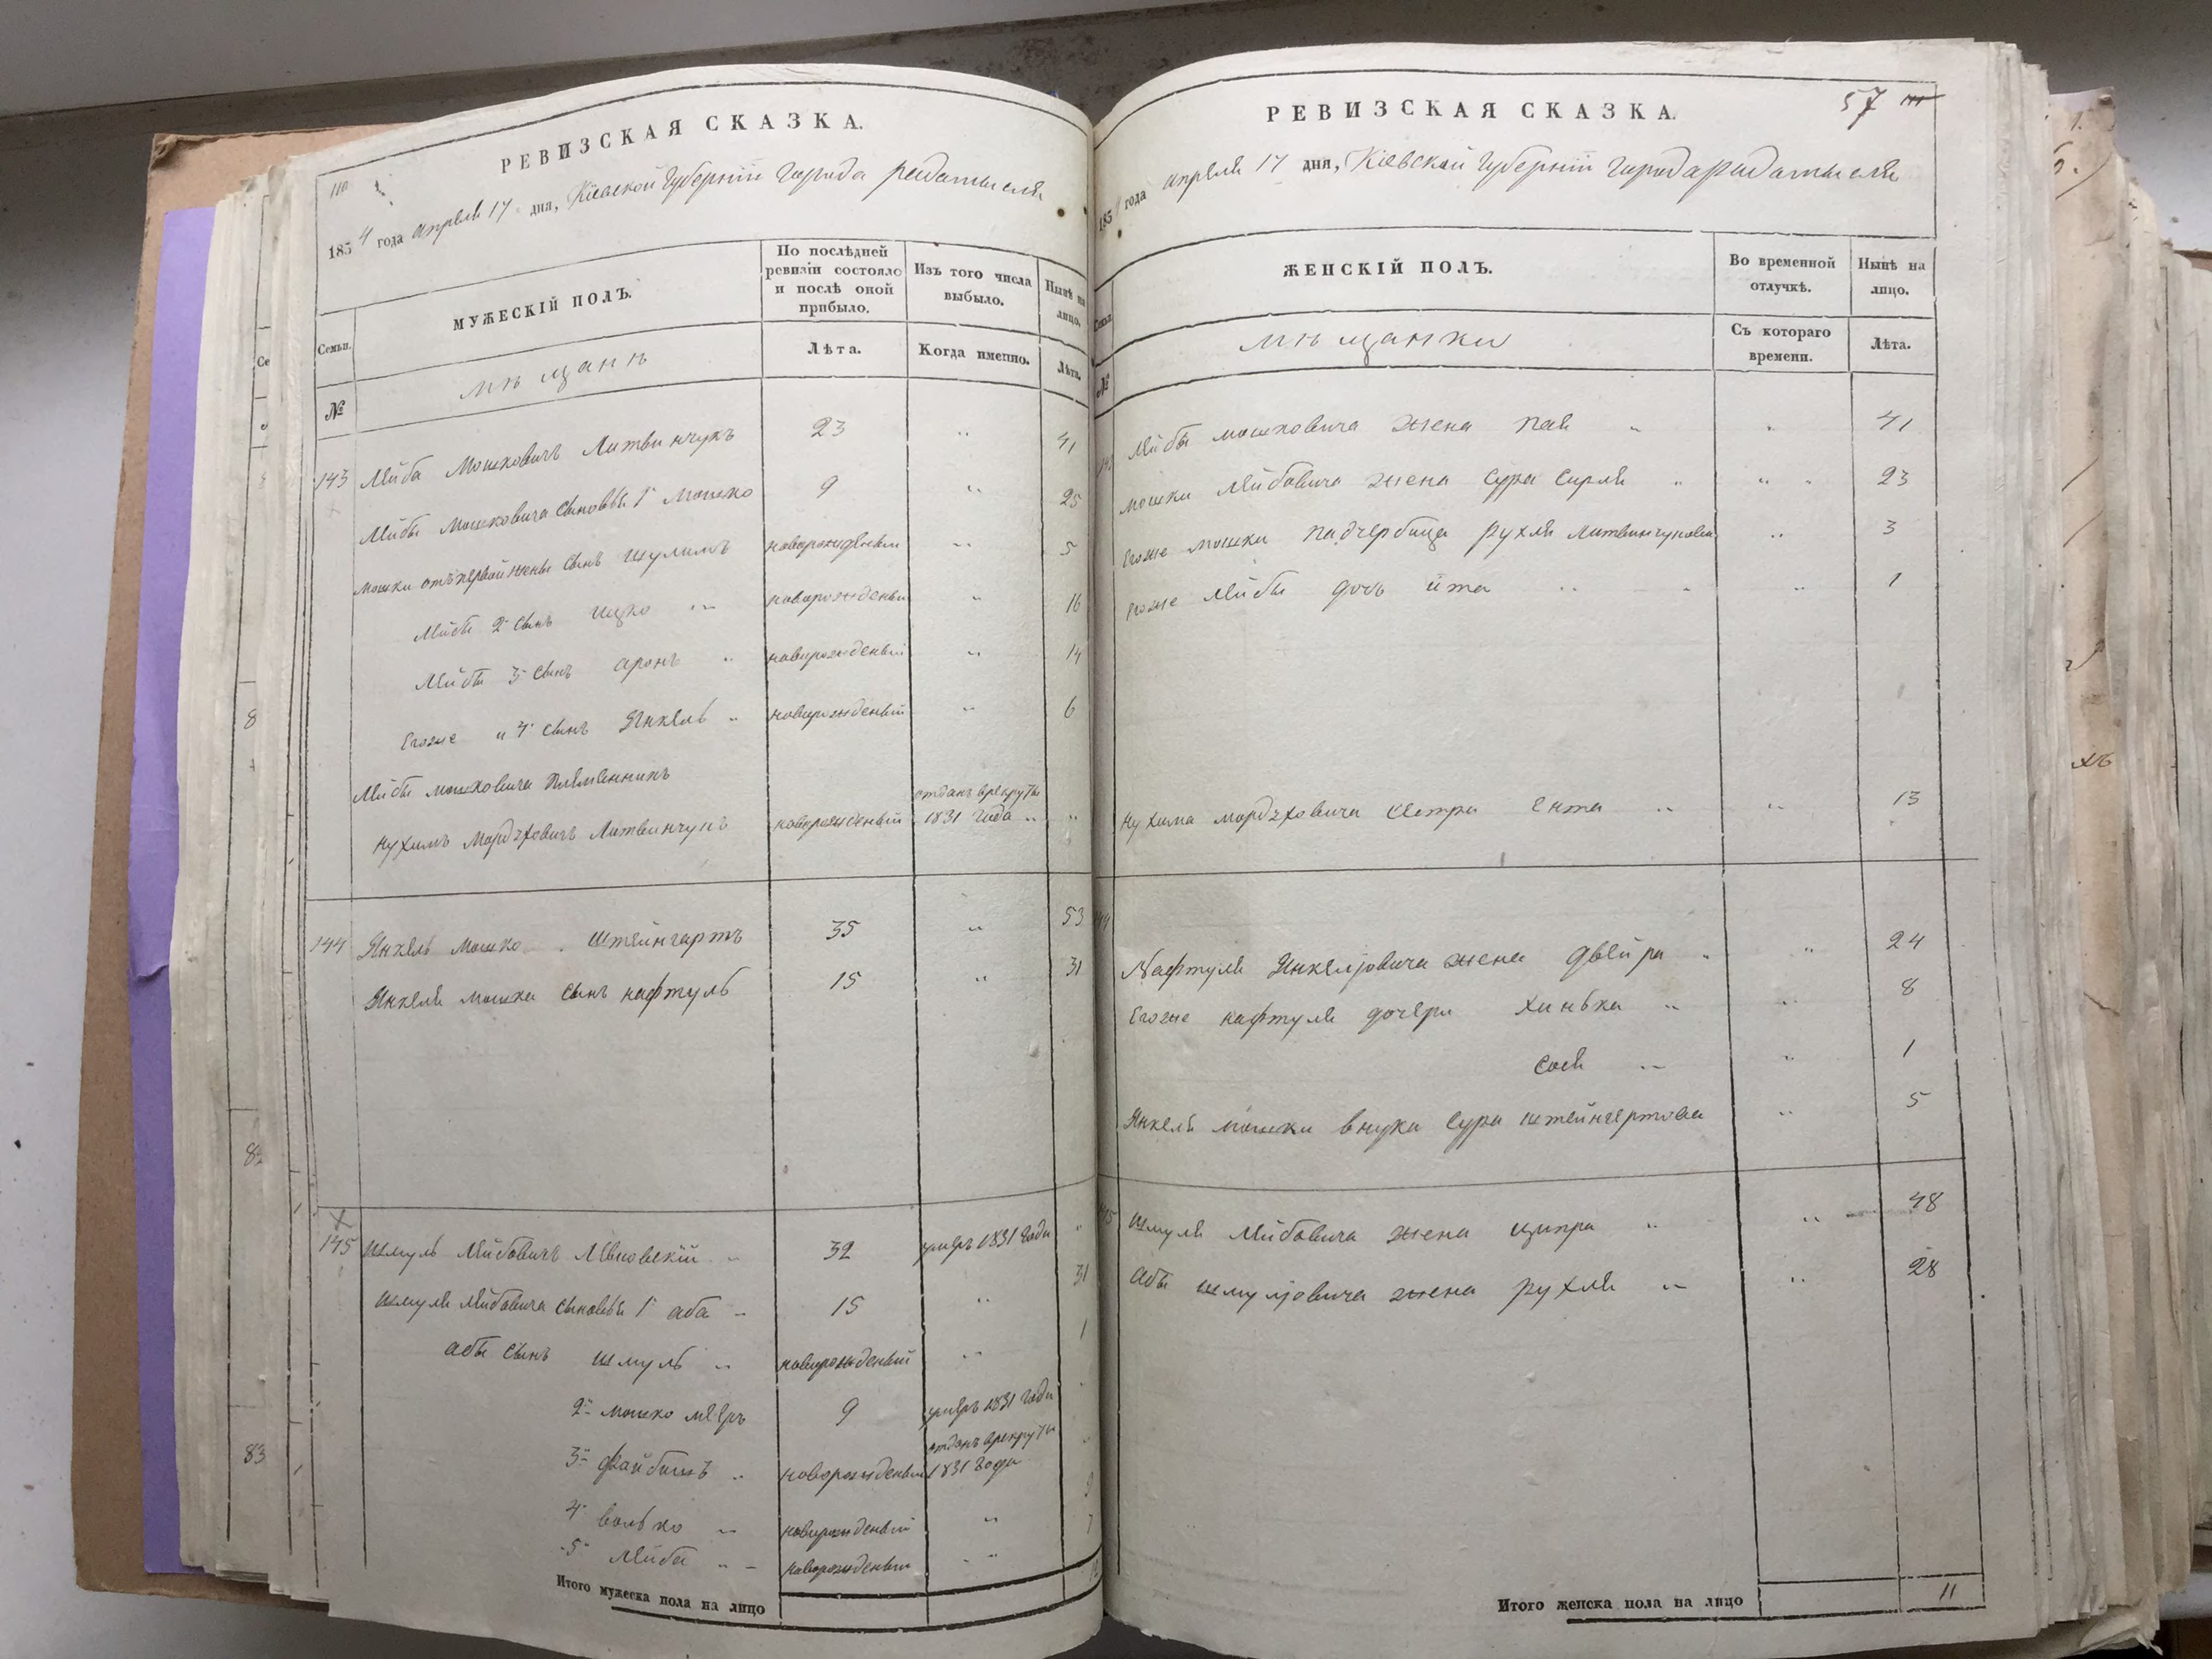 РЕВИЗСКАЯ СКАЗКА.
1854 года апреля 17 дня, Кіевской Губерніи города радомысля
Семьи.
МУЖЕСКІЙ ПОЛЪ.
По послѣдней ревизіи состояло и послѣ оной прибыло.
Изъ того числа выбыло.
Нынѣ на лицо.
№
мѣщанѣ
Лѣта.
Когда именно.
Лѣта.
143 Лейба Мошковичъ Литвинчукъ 23 " 41
Лейбы Мошковича сыновья 1й Мошко 9 " 25
Мошки отъ первой жены сынъ Шулимъ новорожденый " 5
Лейбы 2й сынъ Ицко " новорожденый " 16
Лейбы 3й сынъ Аронъ " новорожденый " 14
Егоже и 4й сынъ Янкель " новорожденый " 6
Лейбы мошковича племенникъ
отданъ врекруты
Нухимъ Мордховичъ Литвинчукъ новорожденый 1831 года " "
144 Янкель Мошко Штейнгартъ 35 " 53
Янкеля мошка сынъ нафтуль 15 " 31
145 Шмуль Лейбовичъ 32 умеръ 1831 года "
Шмуля Лейбовича сыновья 1й аба 15 " 31
абы сынъ шмуль " новорожденый " 1
2й мошко мееръ 9 умеръ 1831 года "
отданъ врекруты
3й файбишъ " новорожденый 1831 года "
4й волько " новорожденый " 9
5й Лейба " новорожденый " 7
Итого мужеска пола на лицо
РЕВИЗСКАЯ СКАЗКА.
57
185 года апреля 17 дня, Кіевской Губерніи города радомысля
Семьи.
ЖЕНСКІЙ ПОЛЪ.
Во временной отлучкѣ.
Нынѣ на лицо.
№
мѣщанки
Съ котораго времени.
Лѣта.
Лейбы мошковича жена пая " " 41
мошки Лейбовича жена Сура Сирля " " 23
Егоже мошки падчерѣица рухля Литвинчукова " 3
Егоже Лейбы дочь ита " " 1
Нухима мордховича сестра Ента " " 13
144
Нафтуля Янкелювича жена двейра " " 24
Егоже нафтуля дочери хинька " " 8
Сося " " 1
Янкеля мошки внука Сура штейнгертова " 5
145 Шмуля Лейбовича жена ципра " " 48
Абы шмулювича жена рухля " " 28
Итого женска пола на лицо 11